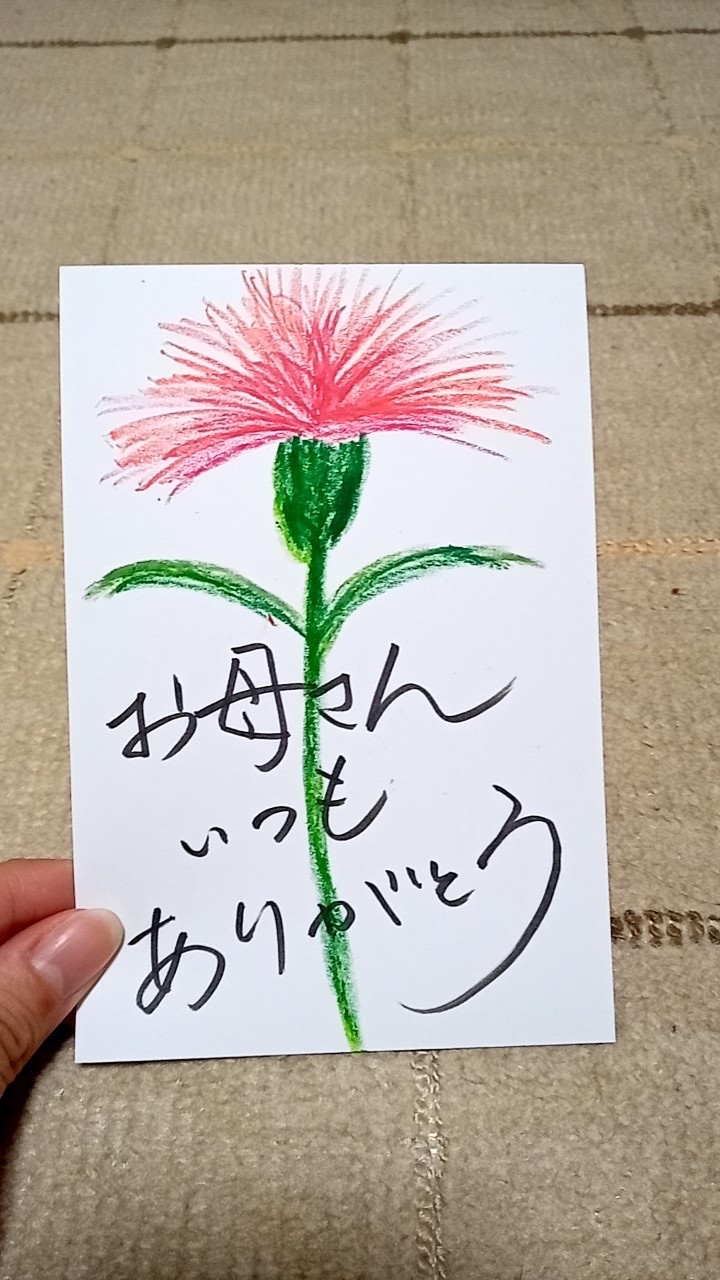 お母さん
いつも
ありがとう